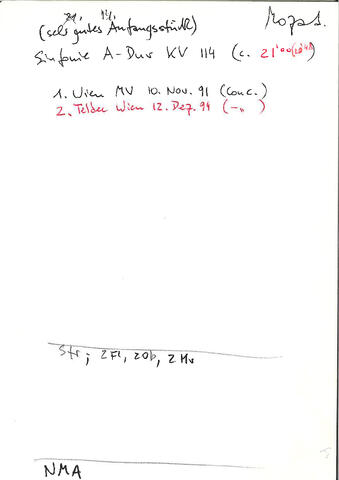 21. 14.
(sehr gutes Anfangsstück) Mozart.
Sinfonie A-Dur KV 114 (c. 21'00
1. Wien MV 10. Nov. 91 (Conc.)
2. Teldec Wien 12. Dez. 94 (-"-)
Str; 2Fl, 2Ob, 2Hr
NMA